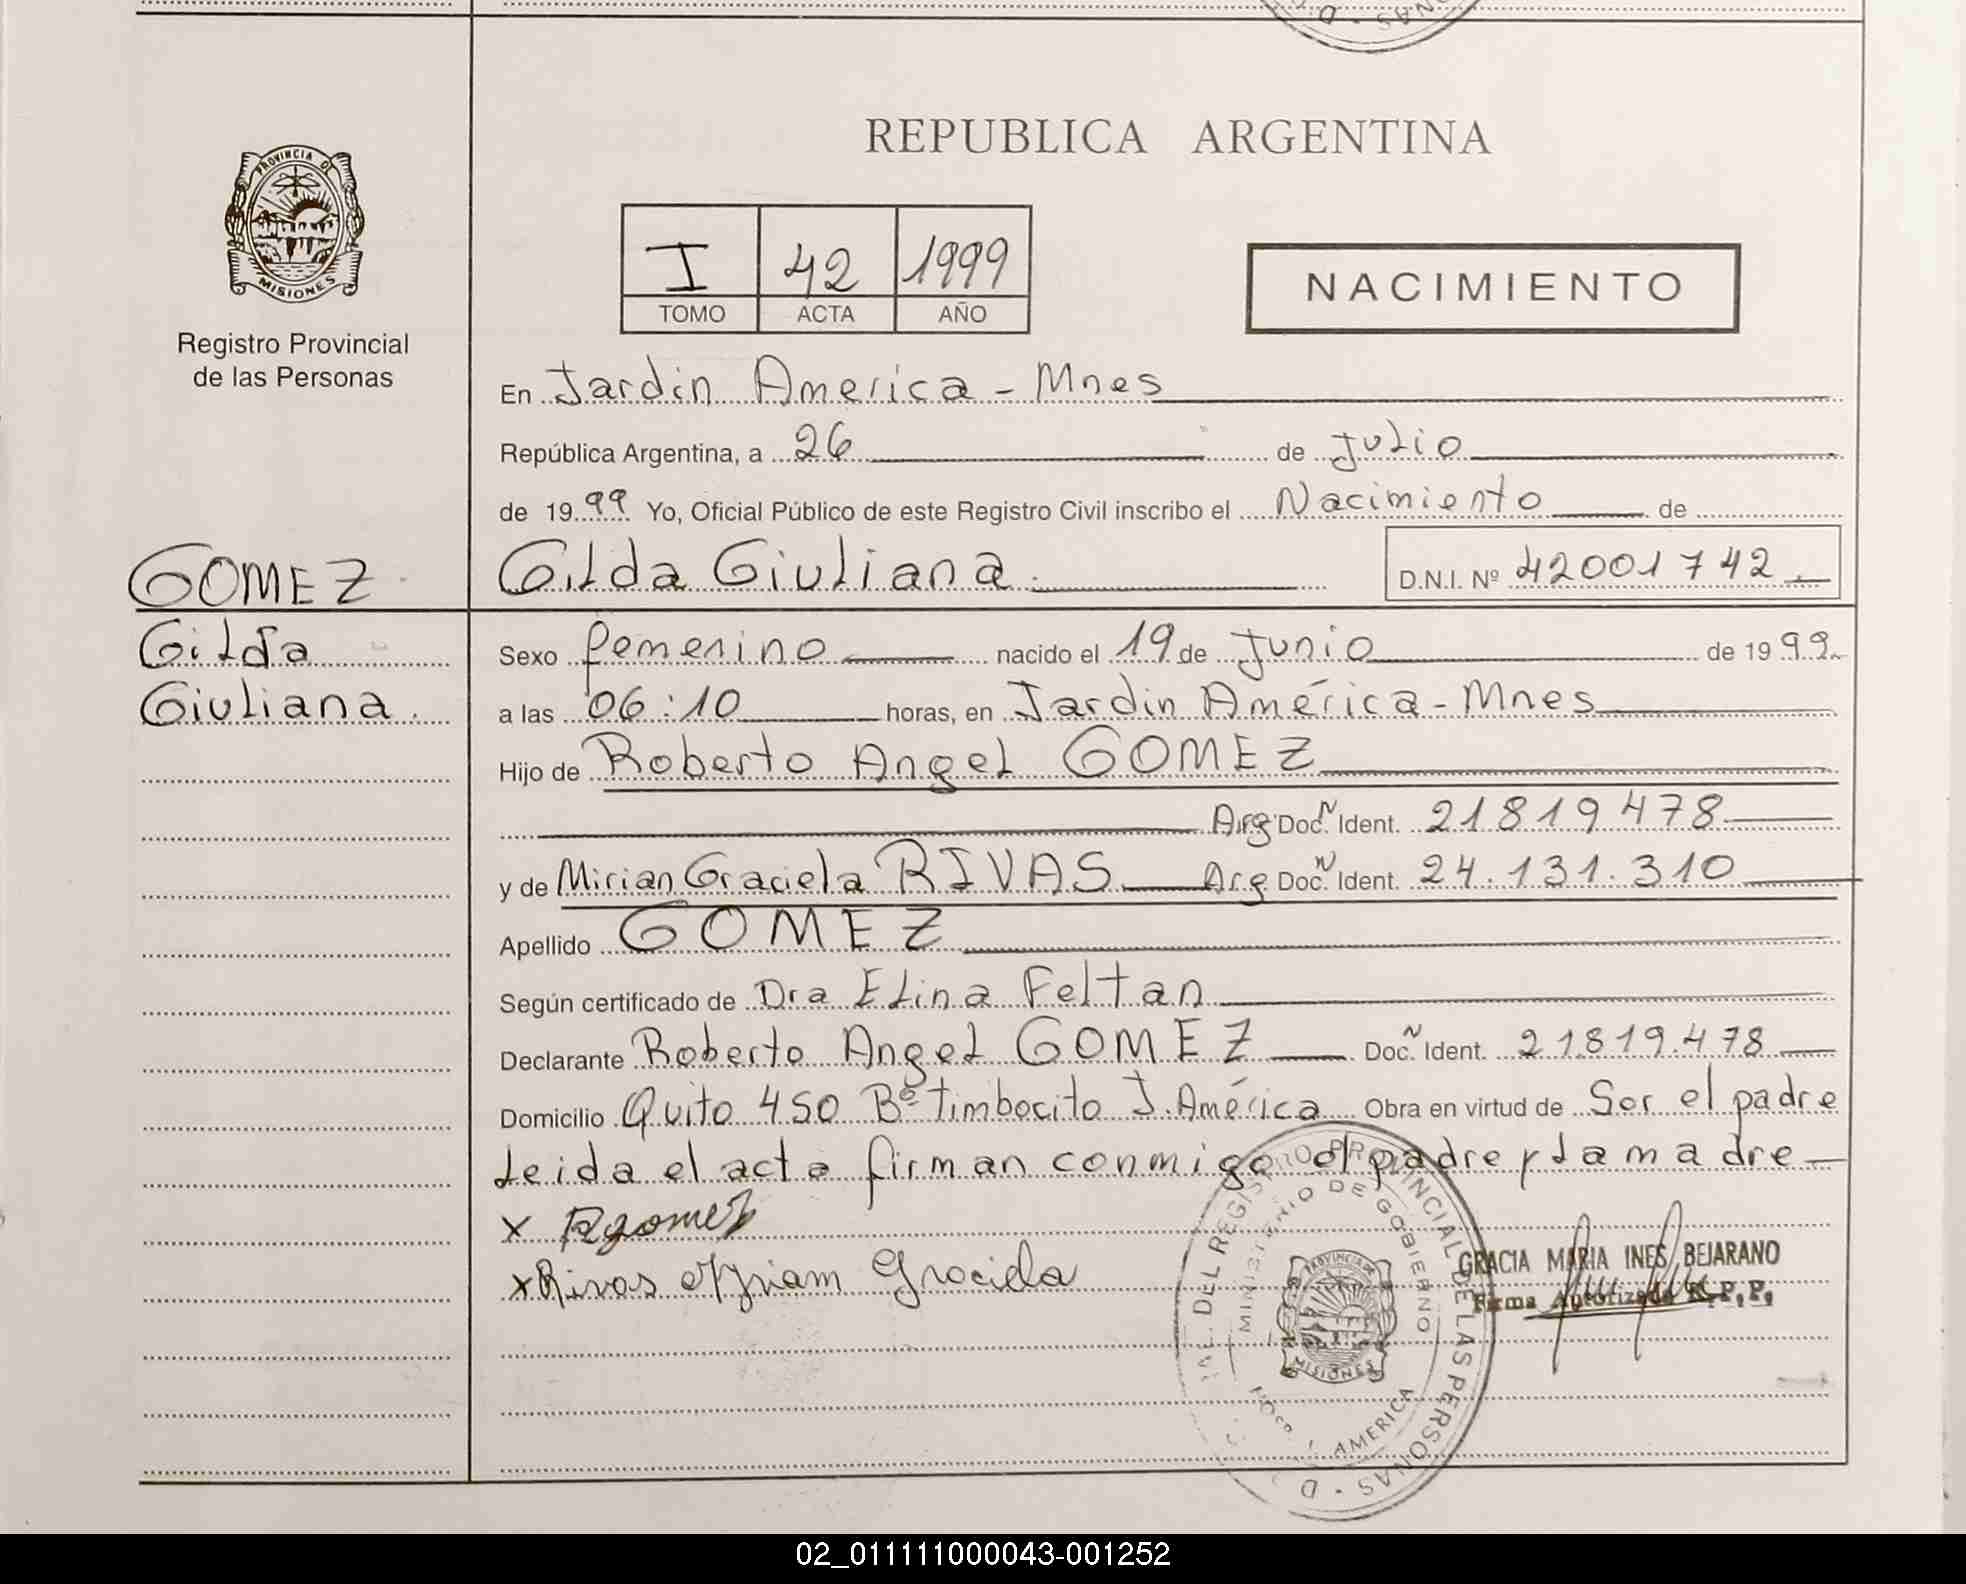 PROVINCIA DE
MISIONES
Registro Provincial
de las Personas
REPUBLICA ARGENTINA
I 42 1999
TOMO ACTA AÑO
NACIMIENTO
En Jardin America - Mnes
República Argentina, a 26 de Julio
de 1999 Yo, Oficial Público de este Registro Civil inscribo el Nacimiento de
GOMEZ Gilda Giuliana. D.N.I. Nº 42001742
Gilda
Giuliana.
Sexo femenino nacido el 19 de Junio de 1999
a las 06:10 horas, en Jardin América - Mnes
Hijo de Roberto Angel GOMEZ
Arg Doc. N Ident. 21819478
y de Mirian Graciela RIVAS Arg. Doc. N Ident. 24.131.310
Apellido GOMEZ
Según certificado de Dra Elina Feltan
Declarante Roberto Angel GOMEZ Doc. N Ident. 21819.478
Domicilio Quito 450 Bº Timbocito J. América Obra en virtud de Ser el padre
Leida el acta firman conmigo el padre y la madre
x Rgomez
x Rivas Myriam Graciela
DEL REGISTRO PROVINCIAL DE LAS PERSONAS
MINISTERIO DE GOBIERNO
PROVINCIA DE
MISIONES
AMERICA
GRACIA MARIA INES BEJARANO
Firma Autorizada R.P.P.
02_011111000043-001252